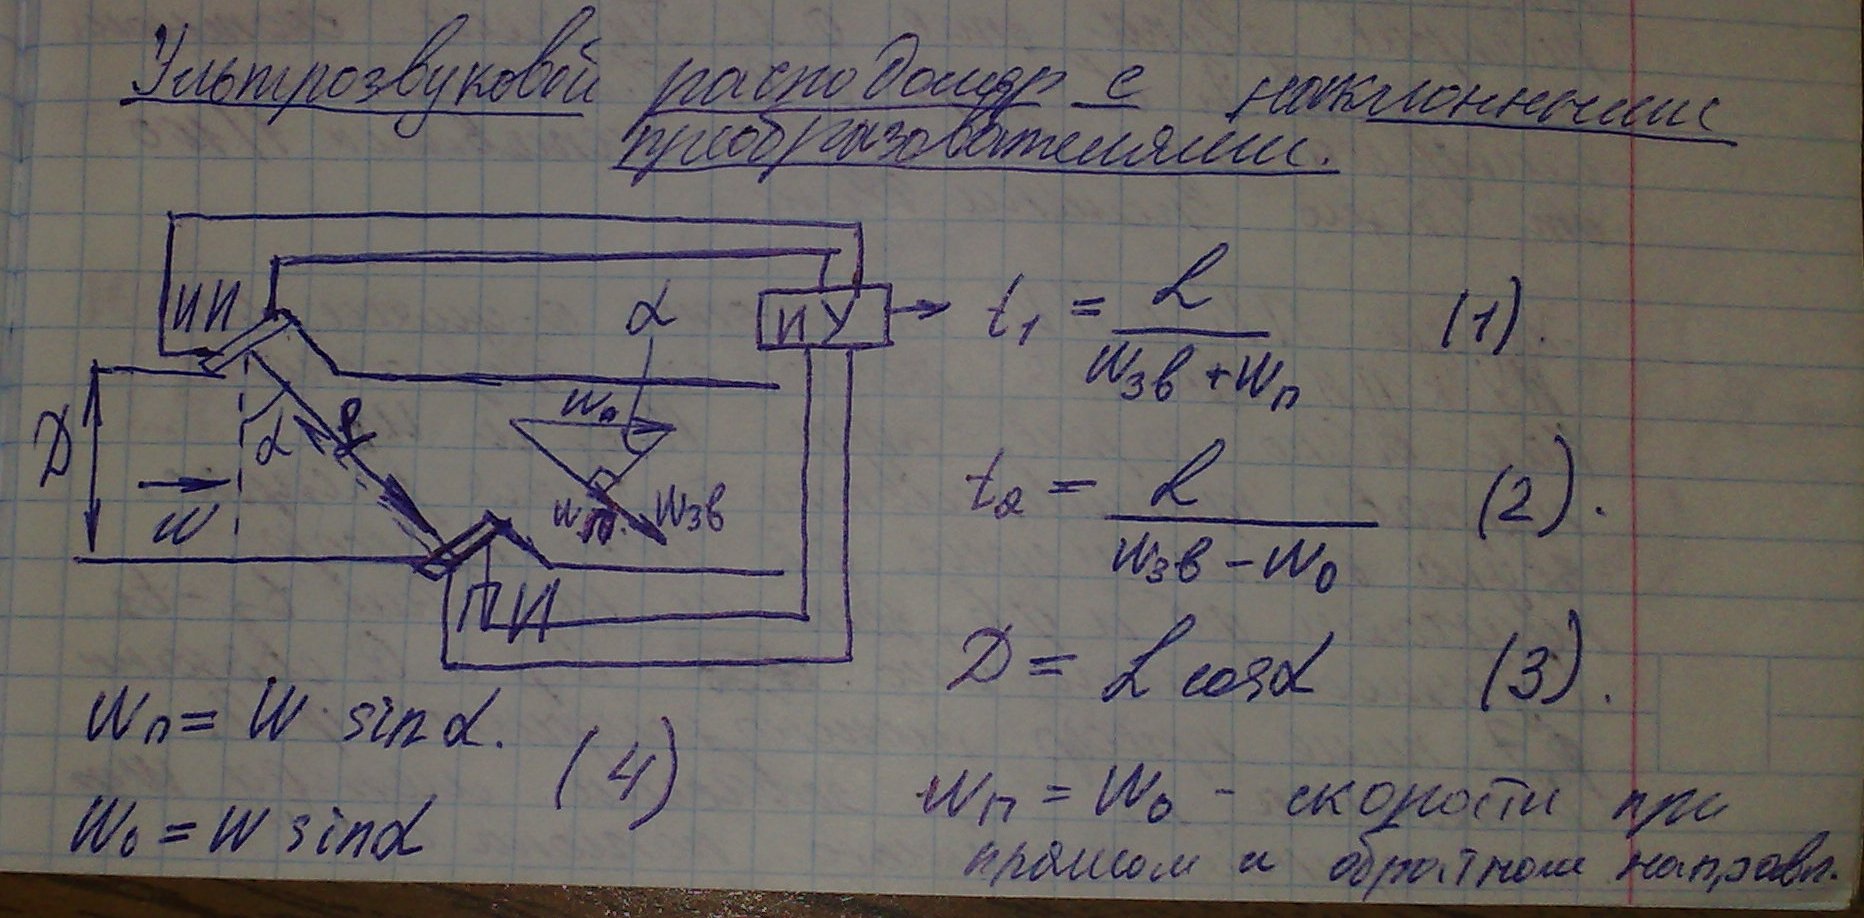 Ультрозвуковой расходомер с наклонными
преобразователями.
ИИ
α
ИУ
t₁ = L / (Wзв + Wп) (1).
D
α
L
W
Wп
Wп.
Wзв
t₂ = L / (Wзв - Wо) (2).
ПИ
D = L cosα (3).
Wп = W · sinα.
(4)
Wо = W sinα
Wп = Wо - скорости при
прямом и обратном направл.